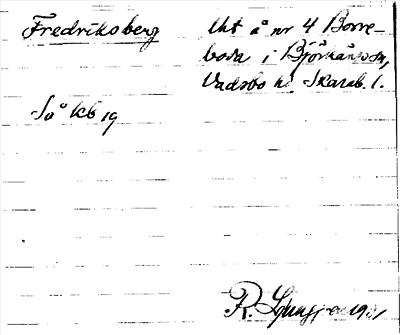 Fredriksberg
Uht å nr 4 Borre-
boda i Björkängssn,
Vadsbo hd Skarab. l.
So å kb 19
R. Ljunggren 1931